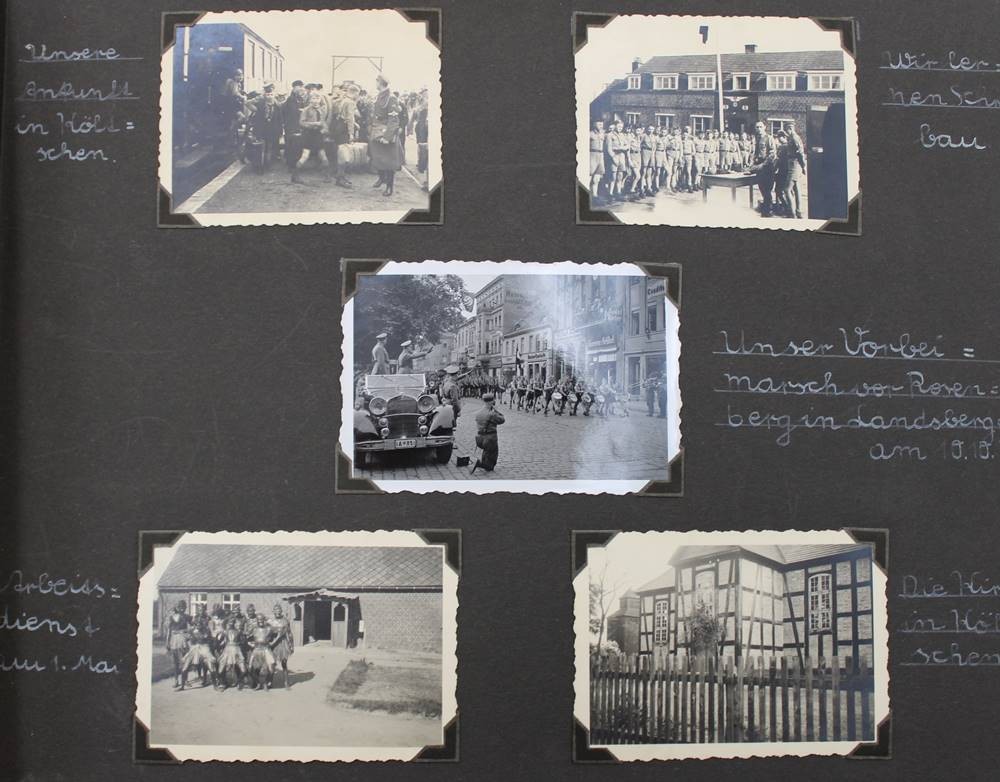 Unsere
Ankunft
in Költ=
schen.
Wir ler=
nen Schi
bau
Unser Vorbei=
marsch vor Rosen=
berg in Landsberg
am 10.10.
Arbeits=
dienst
am 1. Mai
Die Kir
in Költ
schen